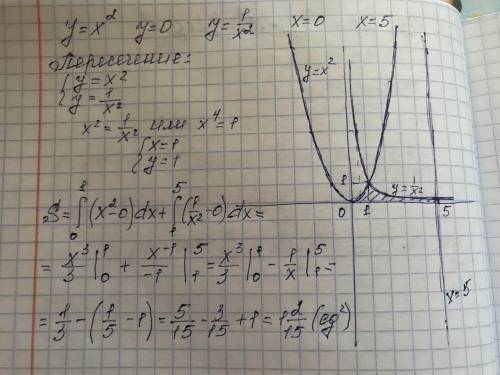 y=x² y=0 y=1/x² x=0 x=5
Пересечение:
{y=x²
{y=1/x²
x²=1/x² или x⁴=1
{x=1
{y=1
S=∫₀¹(x²-0)dx+∫₁⁵(1/x²-0)dx=
=x³/3|₀¹+x⁻¹/-1|₁⁵=x³/3|₀¹-1/x|₁⁵=
=1/3-(1/5-1)=5/15-3/15+1=1 2/15 (ед²)
y=x²
1
y=1/x²
0 1 5
x=5